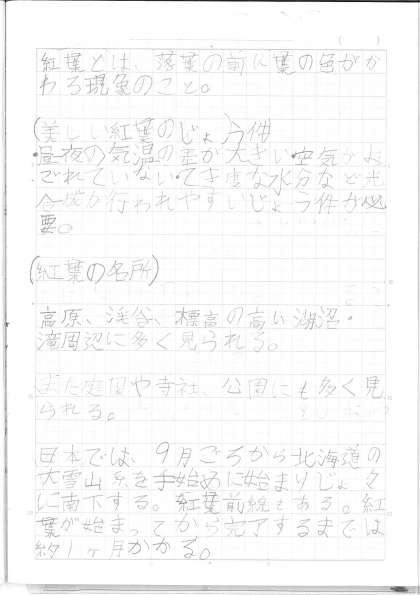 紅葉とは、落葉の前に葉の色がか
わる現象のこと。
(美しい紅葉のじょう件
・昼夜の気温の差が大きい・空気がよ
ごれていない・てき度な水分など光
合成が行われやすいじょう件が必
要。
(紅葉の名所)
高原、渓谷、標高の高い湖沼・
滝周辺に多く見られる。
また庭園や寺社、公園にも多く見
られる。
日本では、9月ごろから北海道の
大雪山系を手始めに始まりじょ々
に南下する。紅葉前線とある。紅
葉が始まってから完了するまでは
約1ヶ月かかる。